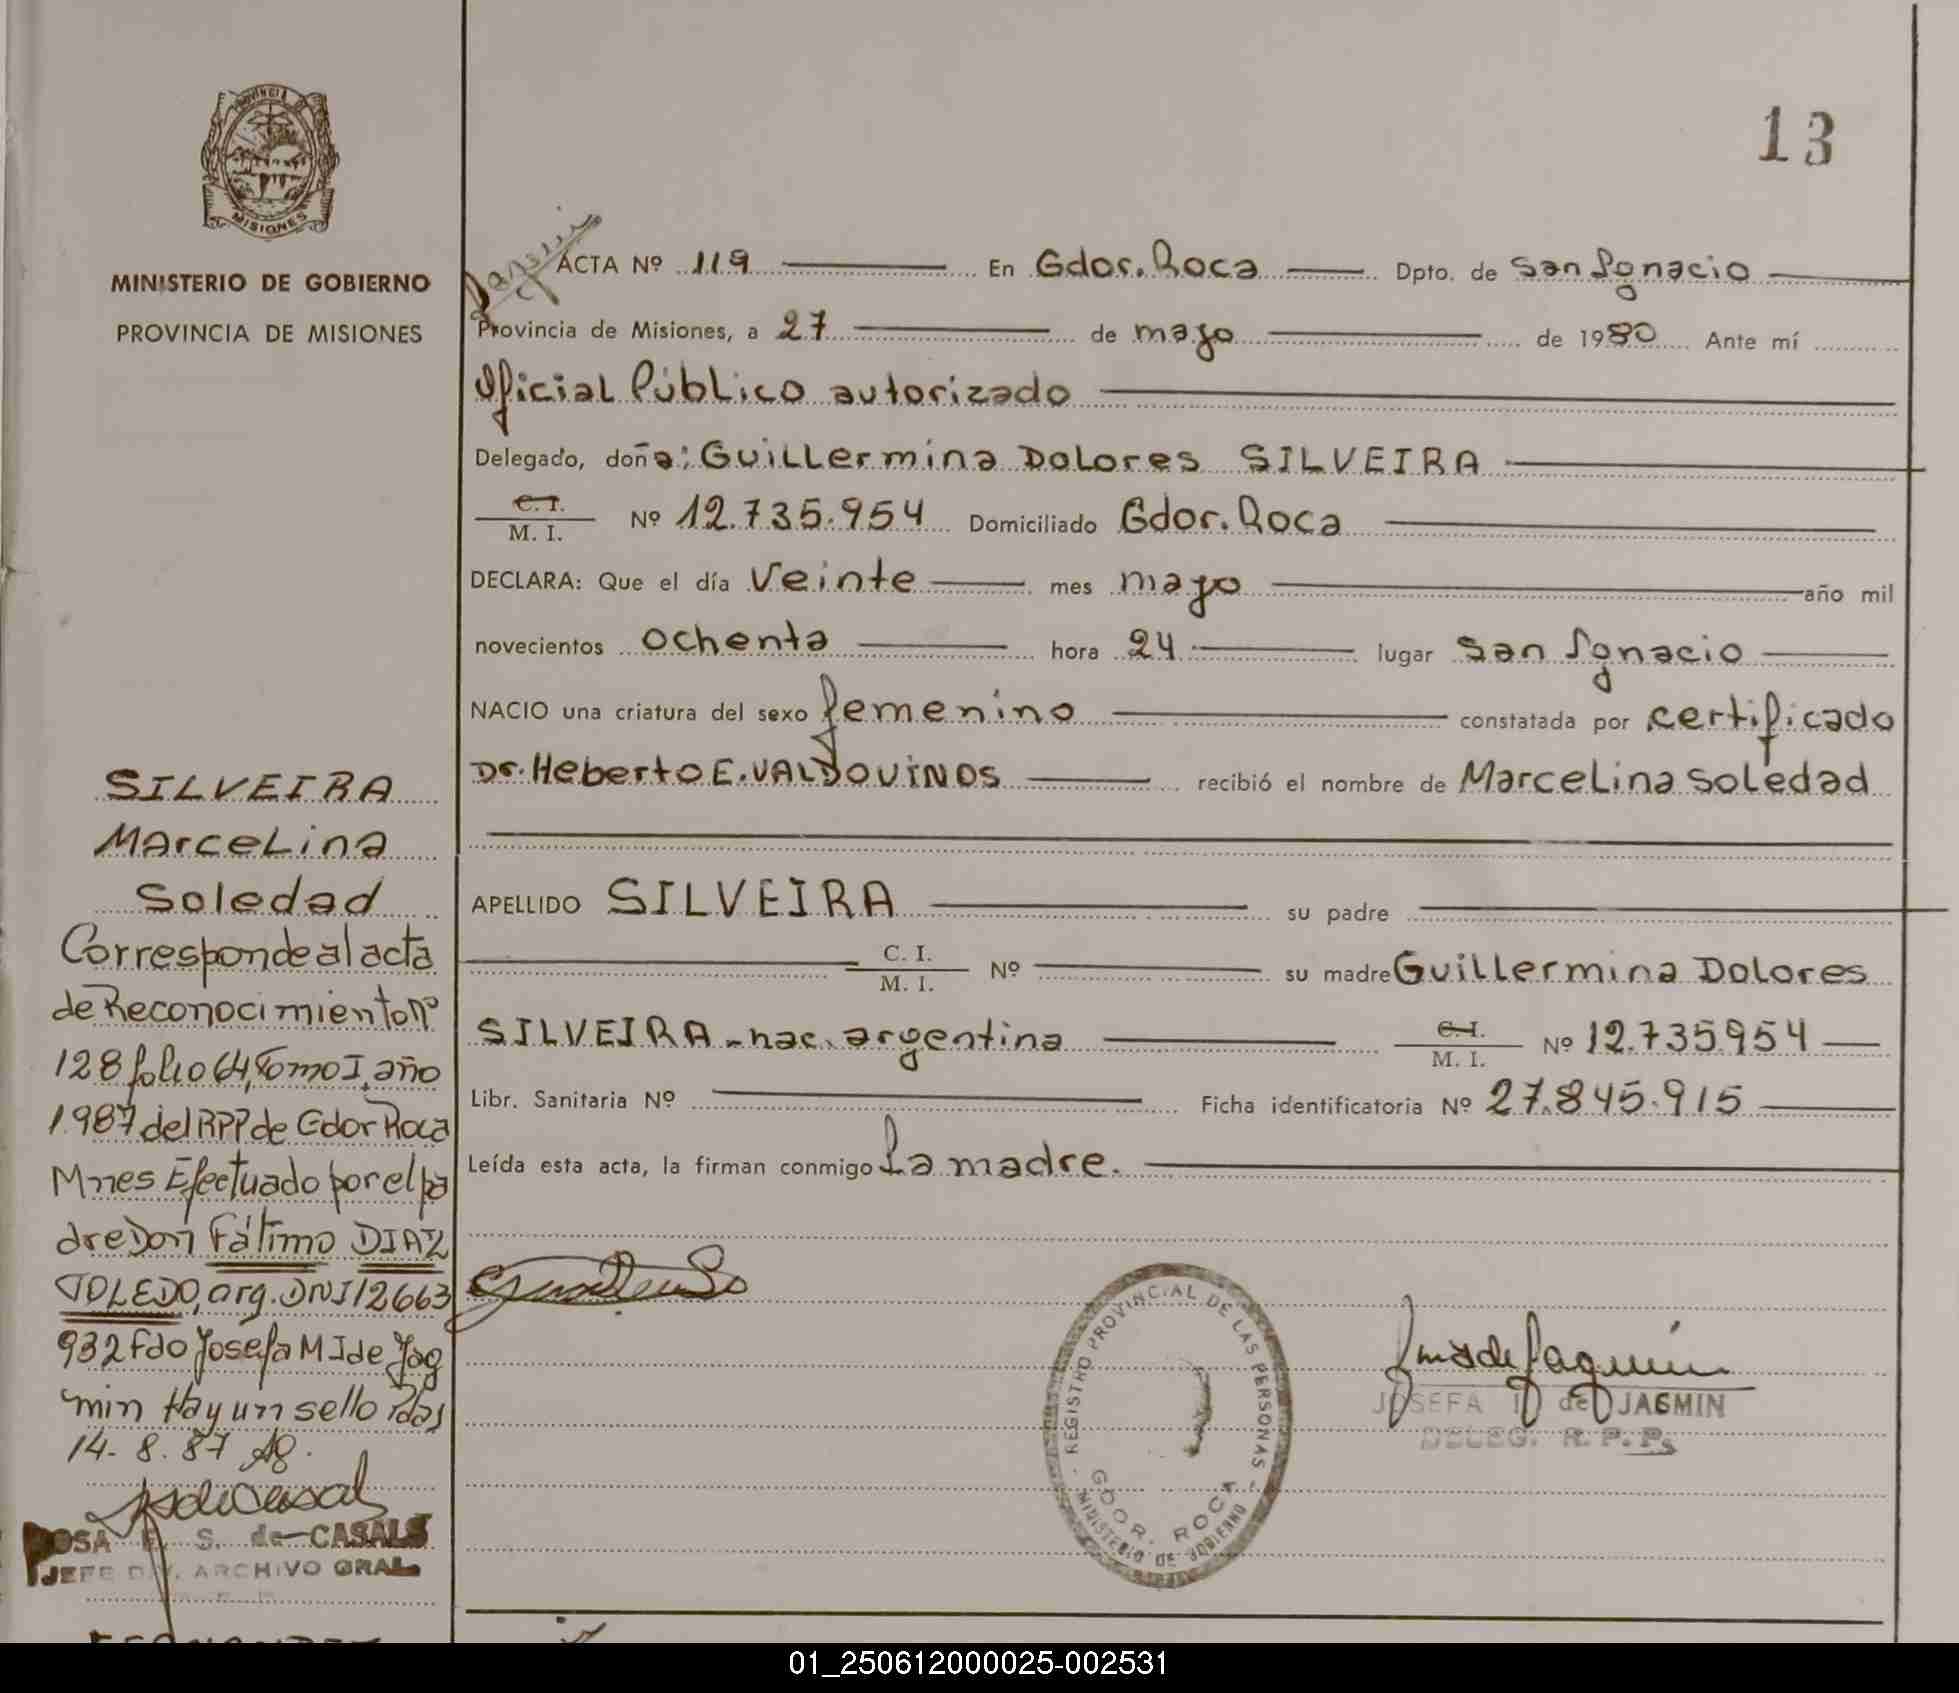 PROVINCIA DE
MISIONES
MINISTERIO DE GOBIERNO
PROVINCIA DE MISIONES
13
ACTA Nº 119 En Gdor. Roca Dpto. de San Ignacio
Provincia de Misiones, a 27 de mayo de 1980 Ante mí
Oficial Público autorizado
Delegado, doña: Guillermina Dolores SILVEIRA
C. I.
M. I. Nº 12.735.954 Domiciliado Gdor. Roca
DECLARA: Que el día veinte mes mayo año mil
novecientos ochenta hora 24 lugar San Ignacio
NACIO una criatura del sexo femenino constatada por certificado
Dr. Heberto E. VALDOVINOS recibió el nombre de Marcelina Soledad
APELLIDO SILVEIRA su padre
C. I.
M. I. Nº su madre Guillermina Dolores
SILVEIRA - nac. argentina C. I.
M. I. Nº 12.735954
Libr. Sanitaria Nº Ficha identificatoria Nº 27.845.915
Leída esta acta, la firman conmigo la madre.
SILVEIRA
Marcelina
Soledad
Corresponde al acta
de Reconocimiento nº
128 folio 64, Tomo I, año
1987 del RPP de Gdor Roca
Mnes Efectuado por el pa
dre Don Fátimo DIAZ
TOLEDO, arg. DNI 12663
932 Fdo Josefa M I de Jag
min Hay un sello Pdas
14-8.87
ROSA E. S. de CASALS
JEFE DIV. ARCHIVO GRAL
REGISTRO PROVINCIAL DE LAS PERSONAS
GDOR. ROCA
MINISTERIO DE GOBIERNO
JOSEFA I de JAGMIN
DELEG. R. P. Ps
01_250612000025-002531